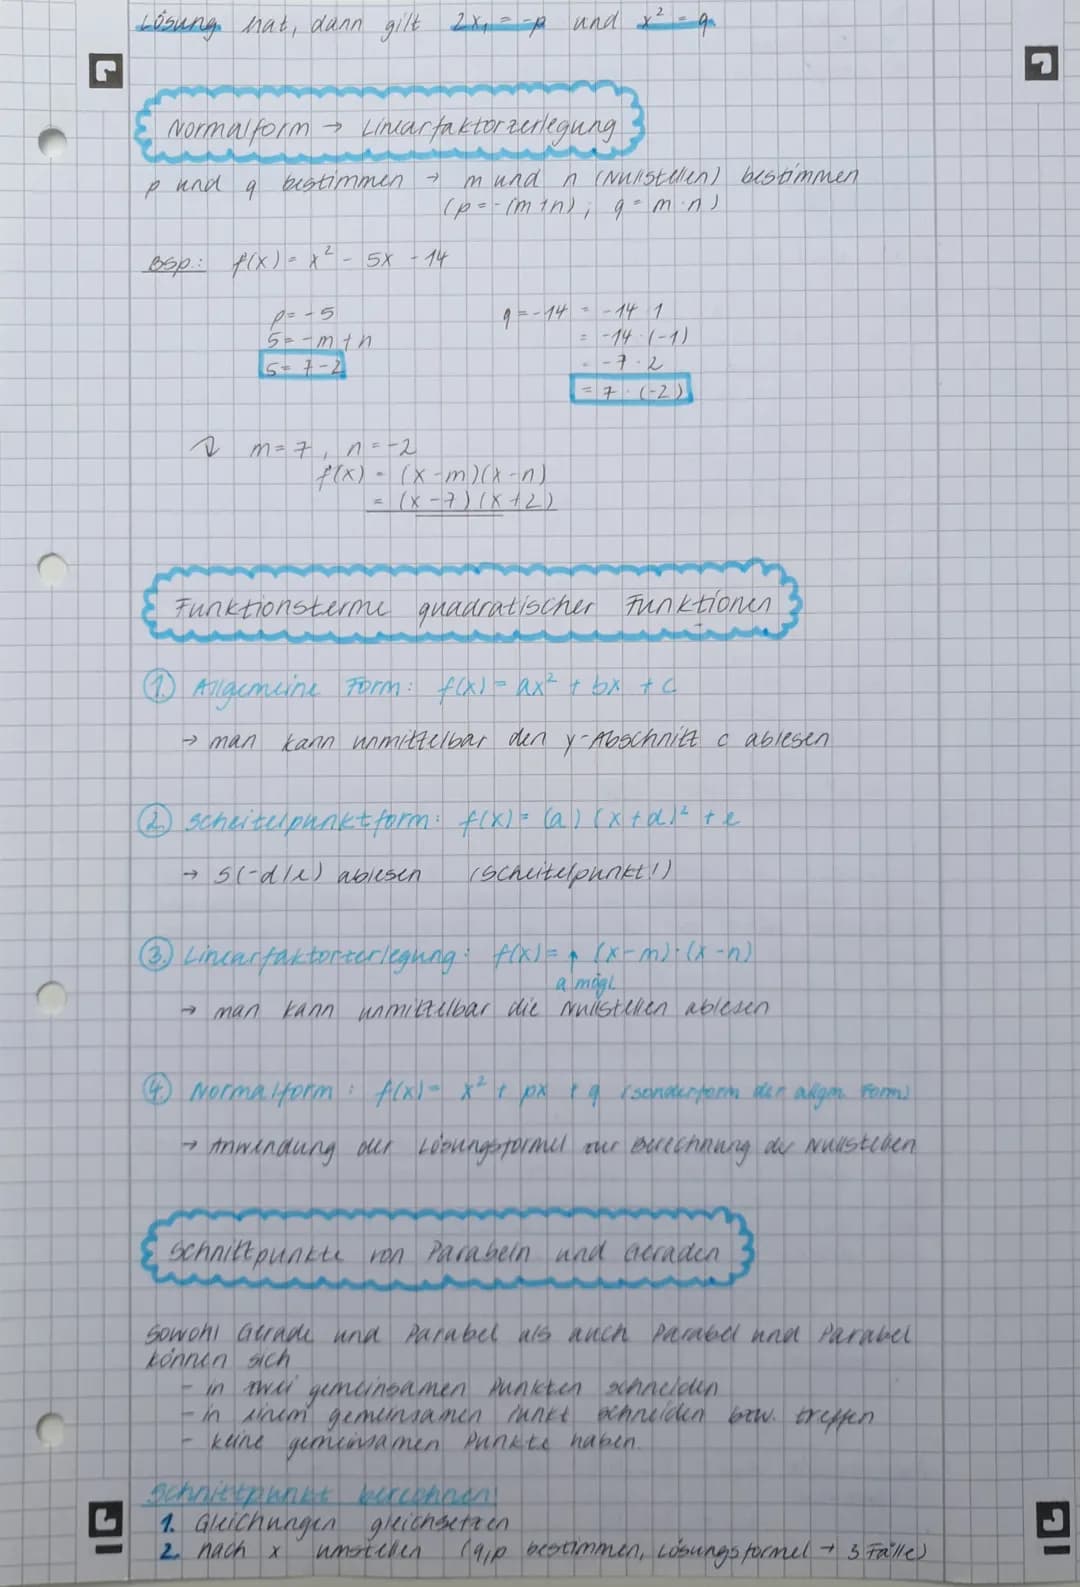 Lösung hat, dann gilt 2x₁ = -p und x² = q.
Normalform → Linearfaktorzerlegung
p und q bestimmen → m und n (Nullstellen) bestimmen
(p = -(m+n); q = m·n)
Bsp.: f(x) = x² - 5x - 14
p = -5 q = -14 = -14 · 1
5 = -m + n = -14 · (-1)
5 = 7 - 2 = -7 · 2
= 7 · (-2)
m = 7, n = -2
f(x) = (x-m)(x-n)
= (x-7)(x+2)
Funktionsterme quadratischer Funktionen
1. Allgemeine Form: f(x) = ax² + bx + c
→ man kann unmittelbar den y-Abschnitt c ablesen
2. Scheitelpunktform: f(x) = (a) (x+d)² + e
→ S(-d/e) ablesen (Scheitelpunkt!)
3. Linearfaktorzerlegung: f(x) = ↑ (x-m)·(x-n)
a mögl.
→ man kann unmittelbar die Nullstellen ablesen
4. Normalform: f(x) = x² + px + q (sonderform der allgm. Form)
→ Anwendung der Lösungsformel zur Berechnung der Nullstellen
Schnittpunkte von Parabeln und Geraden
Sowohl Gerade und Parabel als auch Parabel und Parabel
können sich
- in zwei gemeinsamen Punkten schneiden
- in einem gemeinsamen Punkt schneiden bzw. treffen
- keine gemeinsamen Punkte haben.
Schnittpunkt berechnen:
1. Gleichungen gleichsetzen
2. nach x umstellen (q,p bestimmen, Lösungsformel → 3 Fälle)